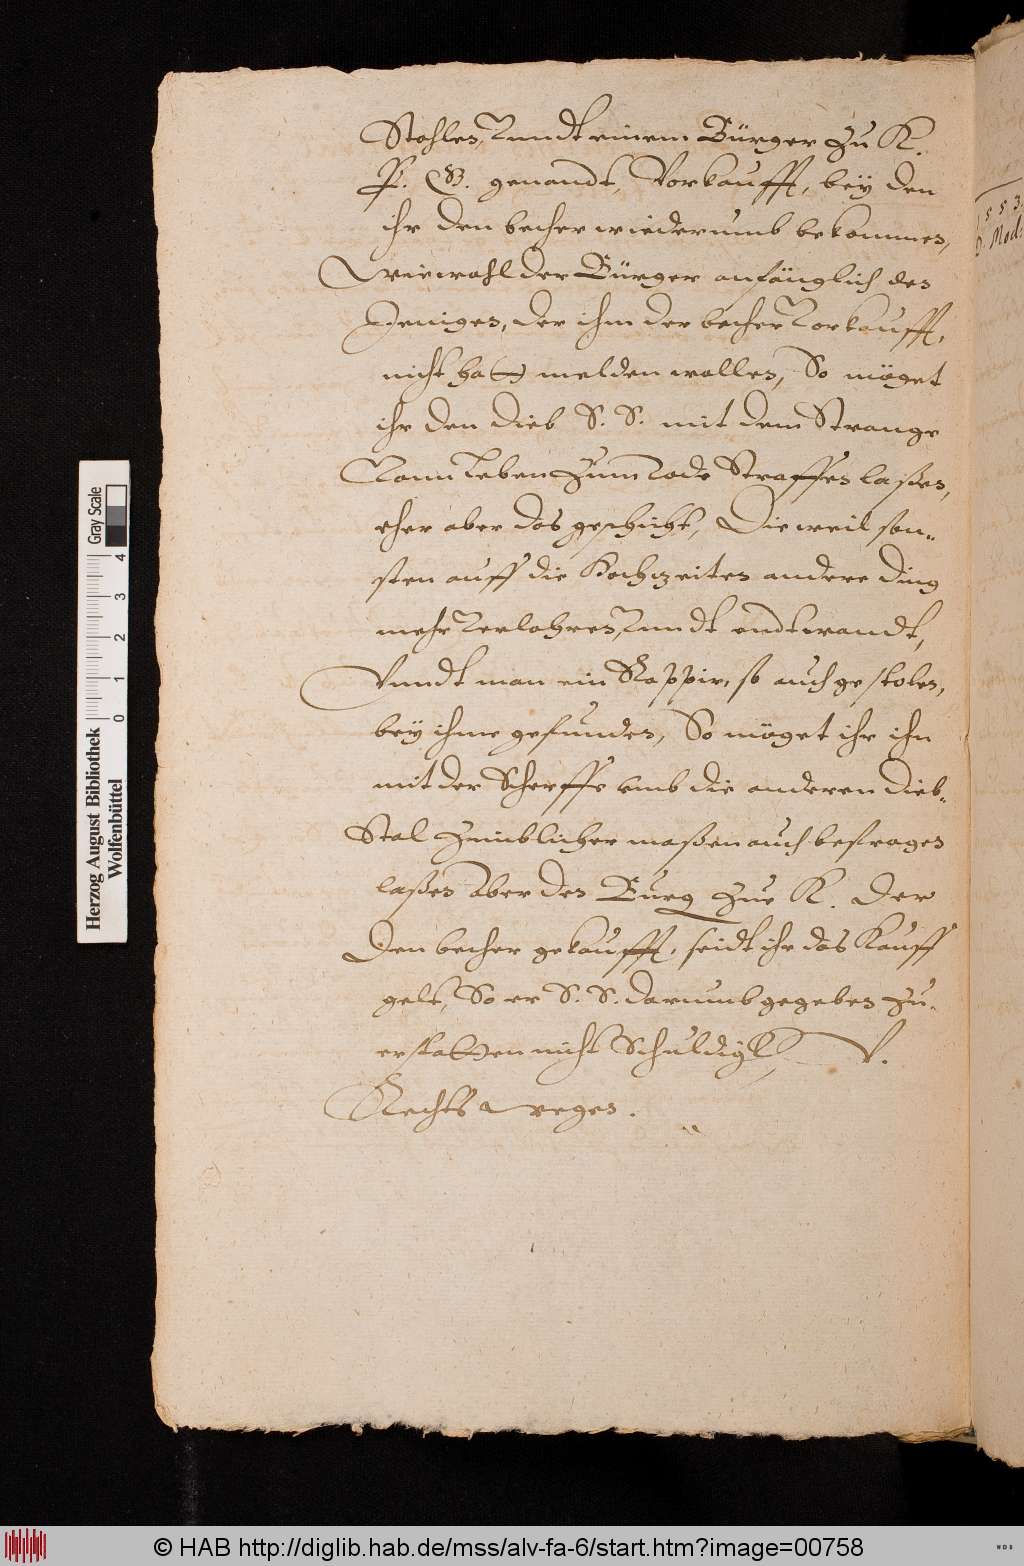 Stohlen, Vnndt einem Bürger zu K.
P. B. genandt, Vorkaufft, bey den
ihr den becher wiederumb bekommen,
wiewohl der Bürger anfänglich den
Jenigen, der ihm der becher Vorkaufft,
nicht hatt melden wollen, So möget
ihr den Dieb S. S. mit dem Strange
Vom Leben zum Tode Straffen laßen,
eher aber das geschicht, Dieweil son-
sten auff die Hochzeiten andere ding
mehr Verlohren, Vnndt endtwandt,
Vnndt man ein Rappir, so auch gestolen,
bey ihme gefunden, So möget ihr ihn
mit der Scherffe vmb die anderen Dieb-
Stal zimblicher maßen auch befragen
laßen Aber den Burg zue K. Der
Den becher gekaufft, seidt ihr das Kauff
gelt, So er S. S. darumb gegeben zu-
erstatten nicht Schuldigk, V.
Rechts wegen.
1553.
Herzog August Bibliothek
Wolfenbüttel
0 1 2 3 4
Gray Scale
© HAB http://diglib.hab.de/mss/alv-fa-6/start.htm?image=00758